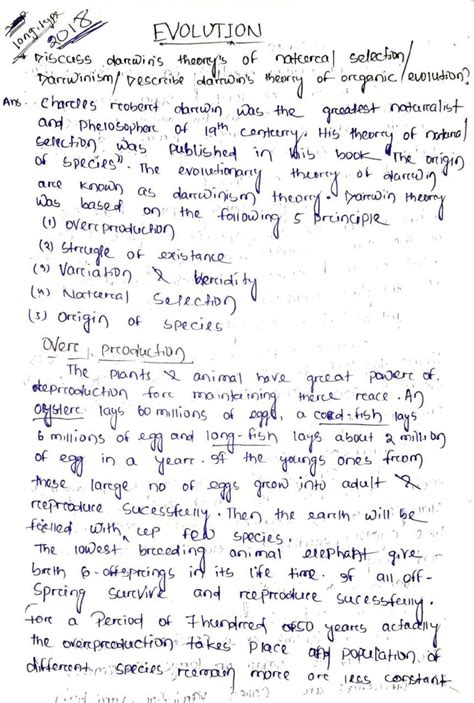 long type
2018
EVOLUTION
Discuss darwin's theory's of natcercal selection/
Darwinism/ Describe darwin's theory of organic evolution?
Ans. Charcles rcobert darwin was the greatest naturcalist
and Phelosopherc of 19th centurcy. His theory of natural
selection was published in his book "The origin
of species". The evolutionary theory of darwin
are known as darcwinism theory. Darwin theory
was based on the following 5 prcinciple
(1) overcproduction
(2) Strcugle of existance
(3) Varciation & hercidity
(4) Natcercal selection
(5) Orcigin of species
Overc prcoduction
The plants & animal have great powerc of
reproduction forc maintaining therce reace. An
oysterc lays 60 millions of eggs, a cord-fish lays
6 millions of egg and long-fish lays about 2 million
of egg in a yearc. If the youngs ones from
these larcge no of eggs grow into adult &
rceproduce sucessfully. Then the earth will be
feelled with cep few species.
The lowest breeding animal elephant give
breth 6-offsprcings in its life time. If all off-
sprcing survive and rceproduce sucessfully.
forc a Period of 7 hundrced 50 years actually
the overcprcoduction takes place and population of
different species rcemain more orc less constant